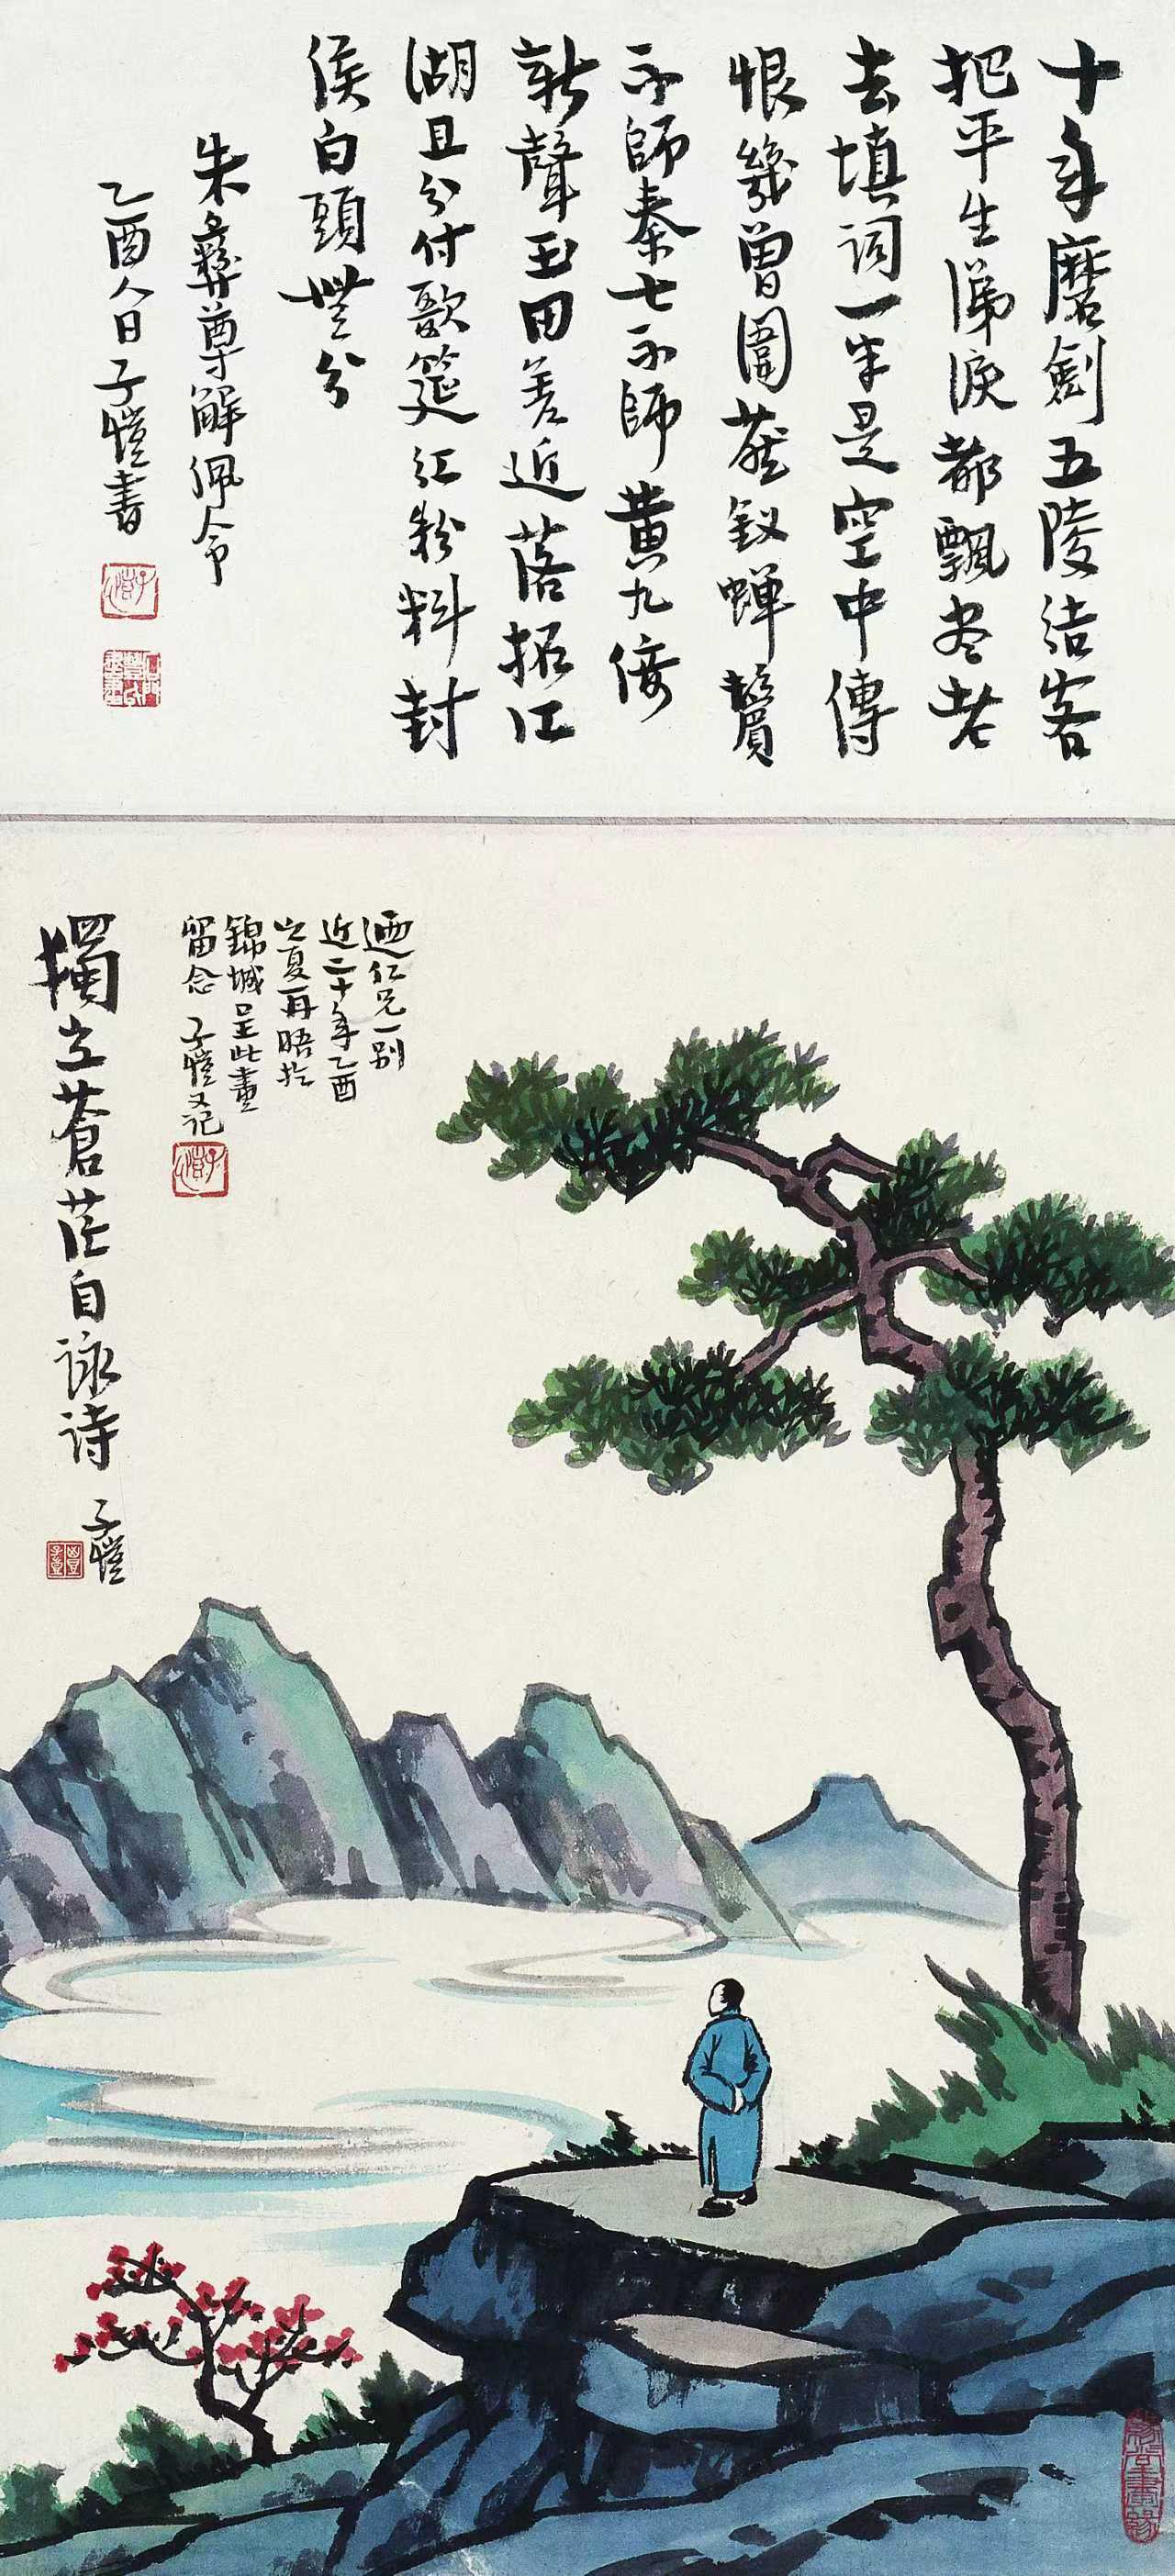 十年磨劍五陵結客
把平生涕淚都飄尽老
去填詞一半是空中傳
恨幾曾圍燕釵蟬鬢
不師秦七不師黄九倚
新聲玉田差近落拓江
湖且分付歌筵紅粉料封
侯白頭無分
朱彝尊解佩令
乙酉人日子愷書
子愷
迺仁兄一别
近二十年乙酉
之夏再晤於
錦城呈此畫
留念 子愷又記
子愷
獨立蒼茫自詠詩 子愷